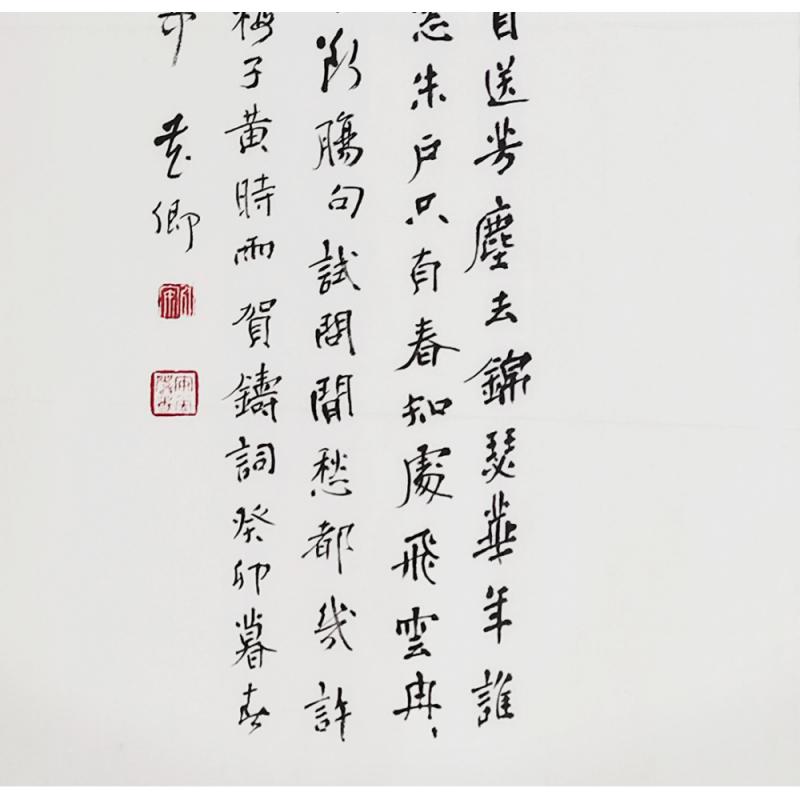 目送芳塵去錦瑟華年誰
朱戶只有春知處飛雲冉、
斷腸句試問閒愁都幾許
梅子黃時雨賀鑄詞癸卯暮春
卿